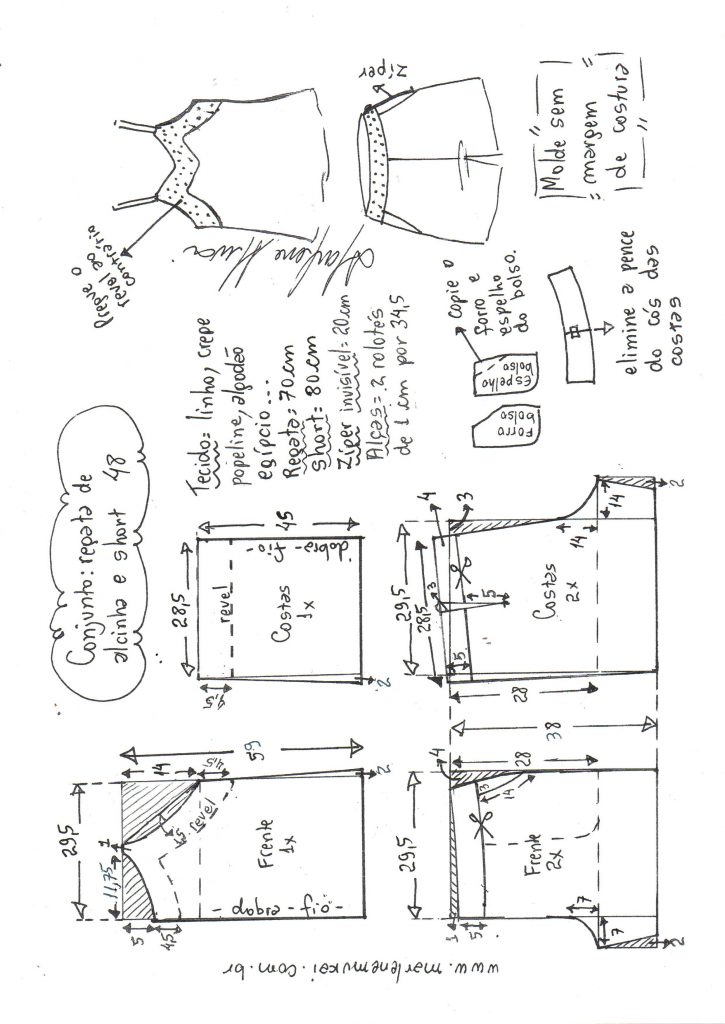 Conjunto: regata de
alcinha e short 48
Tecido: linho, crepe
popeline, algodão
egípcio...
Regata: 70cm
Short: 80cm
Zíper invisível = 20cm
Alças = 2 rolotês
de 1 cm por 34,5
Pregue o
revel ao
contrário
Marlene Mukai
zíper
Molde sem
margem
de costura
copie o
forro e
espelho
do bolso.
espelho
bolso
Forro
bolso
elimine a pence
do cós das
costas
29,5
11,75
1
14
4,5
59
5
4,5
4,5
revel
Frente
1x
dobra - fio -
2
28,5
45
4,5
revel
Costas
1x
dobra - fio -
2
29,5
4
28
38
3
14
1
5
Frente
2x
7
7
2
29,5
28,5
4
3
3
5
5
28
Costas
2x
14
14
2
www.marlenemukai.com.br